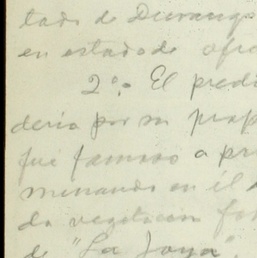 tado de Durango
en estado de
2º. El predi
deria por su prop
fué famoso a pr
minando en él
da vegetación for
de "La Joya".